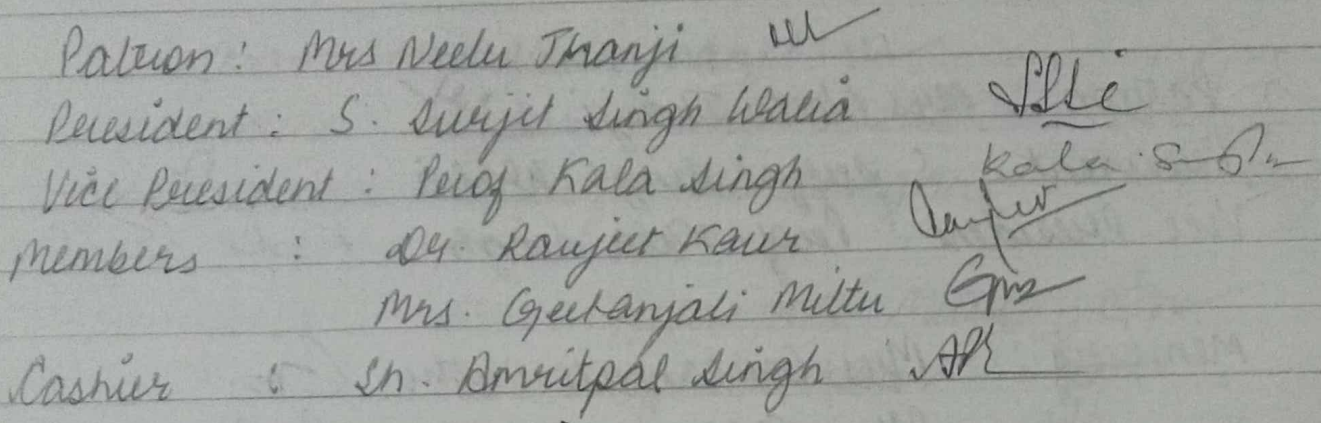 Patron : Mrs Neelu Jhanji
President : S. Surjit Singh Walia
Vice President : Prof Kala Singh Kala S
Members : Dr. Ranjeet Kaur
Mrs. Geetanjali Mittu
Cashier : Sh. Amritpal Singh